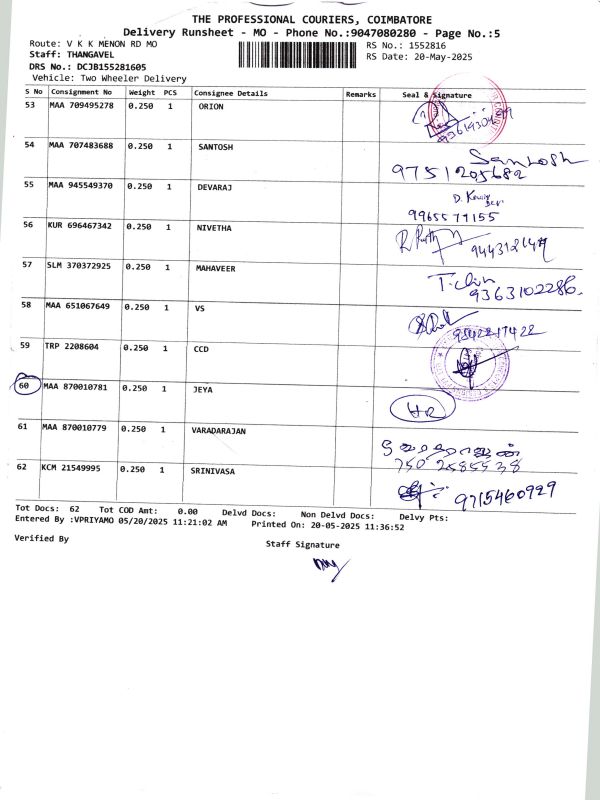 THE PROFESSIONAL COURIERS, COIMBATORE
Delivery Runsheet - MO - Phone No.:9047080280 - Page No.:5
Route: V K K MENON RD MO RS No.: 1552816
Staff: THANGAVEL RS Date: 20-May-2025
DRS No.: DCJB155281605
Vehicle: Two Wheeler Delivery
S No Consignment No Weight PCS Consignee Details Remarks Seal & Signature
53 MAA 709495278 0.250 1 ORION
54 MAA 707483688 0.250 1 SANTOSH Santosh
9751205682
55 MAA 945549370 0.250 1 DEVARAJ
9965579155
56 KUR 696467342 0.250 1 NIVETHA
57 SLM 370372925 0.250 1 MAHAVEER
9363102286
58 MAA 651067649 0.250 1 VS
9542217422
59 TRP 2208604 0.250 1 CCD
60 MAA 870010781 0.250 1 JEYA
HR
61 MAA 870010779 0.250 1 VARADARAJAN
750 2585538
62 KCM 21549995 0.250 1 SRINIVASA
9715460929
Tot Docs: 62 Tot COD Amt: 0.00 Delvd Docs: Non Delvd Docs: Delvy Pts:
Entered By :VPRIYAMO 05/20/2025 11:21:02 AM Printed On: 20-05-2025 11:36:52
Verified By
Staff Signature